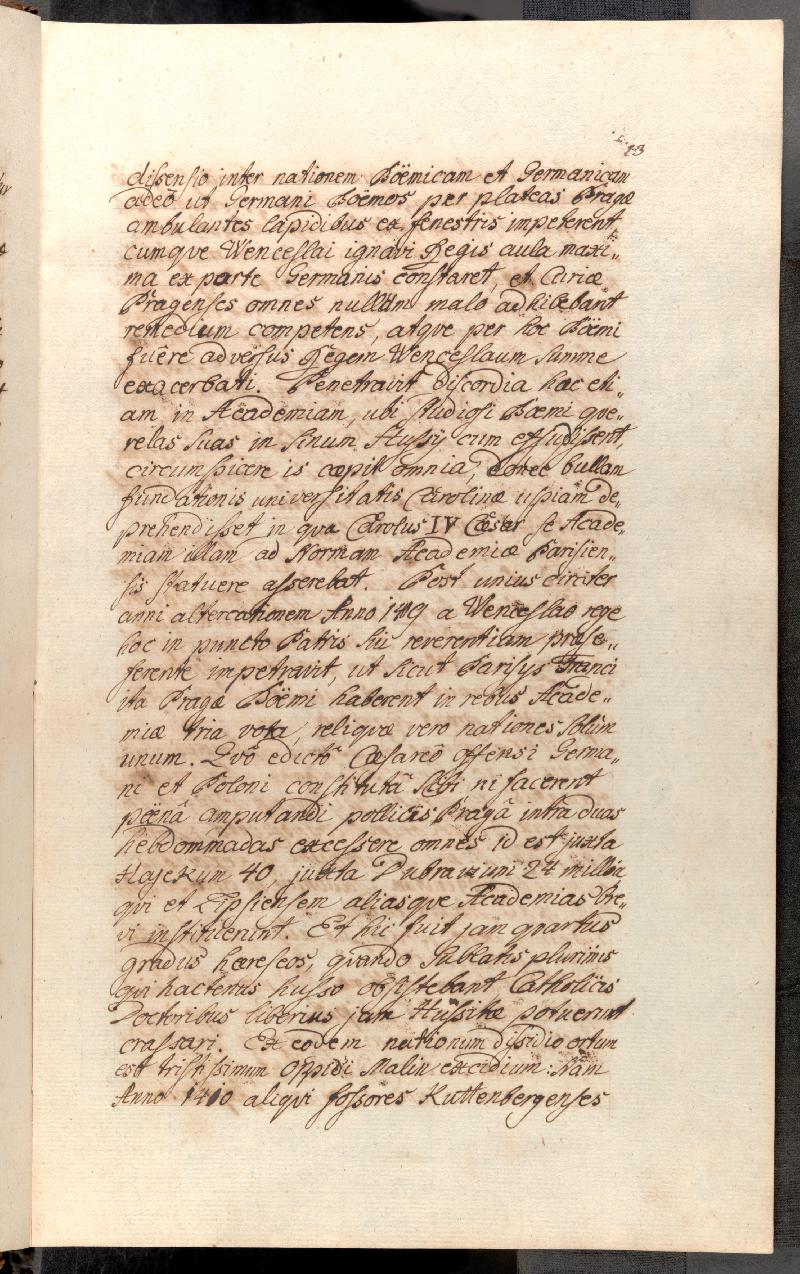 13
dissensio inter nationem Böemicam et Germanicam
adeò ut Germani Böemos per plateas Pragæ
ambulantes lapidibus ex fenestris impeterent,
cumqve Wenceslai ignavi Regis aula maxi„
ma ex parte Germanis constaret, et Curiæ
Pragenses omnes nullum malo adhibebant
remedium competens, atqve per hoc Böemi
fuêre adversus Regem Wenceslaum summe
exacerbati. Penetravit discordia hæc eti„
am in Academiam, ubi studiosi Bœmi qve„
relas suas in sinum Hussij cum effudissent,
circumspicere is cœpit omnia, donec bullam
fundationis universitatis Carolinæ uspiam de„
prehendisset in qva Carolus IV Cæsar se Acade„
miam illam ad Normam Academiæ Parisien„
sis statuere asserebat. Post unius circiter
anni altercationem Anno 1409 a Wenceslao rege
hoc in puncto Patris sui reverentiam præse„
ferente impetravit, ut sicut Parisijs Franci
ita Pragæ Böemi haberent in rebus Acade„
miæ tria vota, reliqvæ vero nationes solùm
unum. Qvô edictô Cæsareô offensi Germa„
ni et Poloni constitutâ sibi ni facerent
pœnâ amputandi pollicis Pragâ intra duas
hebdommadas excessere omnes id est juxta
Hajekum 40, juxta Dubravium 24 millia,
qvi et Lipsiensem aliasqve Academias bre„
vi instituerunt. Et hic fuit jam qvartus
gradus hæreseos, qvando sublatis plurimis
qvi hactenus husso obsistebant Catholicis
Doctoribus liberius jam Hussitæ potuerunt
crassari. Ex eodem nationum dissidio ortum
est tristissimum oppidi Malin excidium. Nam
Anno 1410 aliqvi fossores Kuttenbergenses